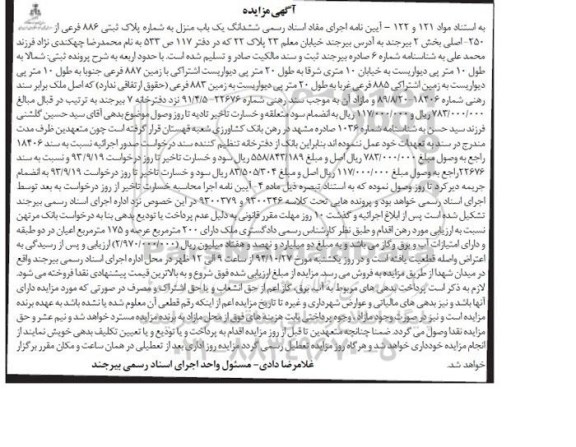 آگهی مزایده
به استناد مواد ۱۲۱ و ۱۲۲ - آیین نامه اجرای مفاد اسناد رسمی ششدانگ یک باب منزل به شماره پلاک ثبتی ۸۸۶ فرعی از
۲۵۰- اصلی بخش ۲ بیرجند به آدرس بیرجند خیابان معلم ۲۳ پلاک ۲۲ که در دفتر ۱۱۷ ص ۵۳۳ به نام محمدرضا چهکندی نژاد فرزند
محمد علی به شناسنامه شماره ۶ صادره بیرجند ثبت و سند مالکیت صادر و تسلیم شده است. با حدود اربعه به شرح پرونده ثبتی: شمالا به
طول ۱۰ متر پی دیواریست به خیابان ۱۰ متری شرقا به طول ۲۰ متر پی دیواریست اشتراکی با زمین ۸۸۷ فرعی جنوبا به طول ۱۰ متر پی
دیواریست به زمین اشتراکی ۸۸۵ فرعی غربا به طول ۲۰ متر پی دیواریست به زمین ۸۸۳ فرعی (حقوق ارتفاقی ندارد) که اصل ملک برابر سند
رهنی شماره ۱۸۴۰۶ - ۸۹/۸/۲۰ و مازاد آن به موجب سند رهنی شماره ۲۲۶۷۶-۹۱/۴/۵ نزد دفترخانه ۷ بیرجند به ترتیب در قبال مبالغ
۷۸۳/۰۰۰/۰۰۰ ریال و ۱۱۷/۰۰۰/۰۰۰ ریال به انضمام سود متعلقه و خسارت تاخیر تادیه تا روز وصول موضوع بدهی آقای سید حسین گلشنی
فرزند سید حسن به شناسنامه شماره ۱۰۳۶ صادره مشهد در رهن بانک کشاورزی شعبه قهستان قرار گرفته است چون متعهدین ظرف مدت
مندرج در سند به تعهدات خود عمل ننموده اند بنابراین بانک از دفترخانه تنظیم کننده سند درخواست صدور اجرائیه نسبت به سند ۱۸۴۰۶
راجع به وصول مبلغ ۷۸۳/۰۰۰/۰۰۰ ریال اصل و مبلغ ۵۵۸/۸۴۳/۱۸۹ ریال سود و خسارت تاخیر تا روز درخواست ۹۳/۹/۱۹ و نسبت به سند
۲۲۶۷۶ راجع به وصول مبلغ ۱۱۷/۰۰۰/۰۰۰ ریال اصل و مبلغ ۸۳/۵۰۵/۳۰۴ ریال سود و خسارت تاخیر تا روز درخواست ۹۳/۹/۱۹ به انضمام
جریمه دیرکرد تا روز وصول نموده که به استناد تبصره ذیل ماده ۴ - آیین نامه اجرا محاسبه خسارت تاخیر از روز درخواست به بعد توسط
اجرای اسناد رسمی خواهد بود و پرونده هایی تحت کلاسه ۹۳۰۰۳۴۶ و ۹۳۰۰۳۷۹ در این خصوص نزد اداره اجرای اسناد رسمی بیرجند
تشکیل شده است پس از ابلاغ اجرائیه و گذشت ۱۰ روز مهلت مقرر قانونی به دلیل عدم پرداخت یا تودیع بدهی بنا به درخواست بانک مرتهن
نسبت به ارزیابی مورد رهن اقدام و طبق نظر کارشناس رسمی دادگستری ملک دارای ۲۰۰ مترمربع عرصه و ۱۷۵ مترمربع اعیان در دو طبقه
و دارای امتیازات آب و برق و گاز می باشد و به مبلغ دو میلیارد و نهصد و هفتاد میلیون ریال (۲/۹۷۰/۰۰۰/۰۰۰) ارزیابی و پس از رسیدگی به
اعتراض واصله قطعیت یافته است و در روز یکشنبه مورخ ۹۴/۱۰/۲۷ از ساعت ۹ الی ۱۲ ظهر در محل اداره اجرای اسناد رسمی بیرجند واقع
در میدان شهدا از طریق مزایده به فروش می رسد. مزایده از مبلغ ارزیابی شده فوق شروع و به بالاترین قیمت پیشنهادی نقدا فروخته می شود.
لازم به ذکر است پرداخت بدهی های مربوط به آب، برق، گاز اعم از حق انشعاب و یا حق اشتراک و مصرف در صورتی که مورد مزایده دارای
آنها باشد و نیز بدهی های مالیاتی و عوارض شهرداری و غیره تا تاریخ مزایده اعم از اینکه رقم قطعی آن معلوم شده یا نشده باشد به عهده برنده
مزایده است و نیز در صورت وجود مازاد، وجوه پرداختی بابت هزینه های فوق از محل مازاد به برنده مزایده مسترد خواهد شد و نیم عشر و حق
مزایده نقدا وصول می گردد. ضمنا چنانچه متعهدین تا قبل از روز مزایده اقدام به پرداخت و یا تودیع و یا تعیین تکلیف بدهی خویش نمایند از
انجام مزایده خودداری خواهد شد و هرگاه روز مزایده تعطیل رسمی گردد مزایده روز اداری بعد از تعطیلی در همان ساعت و مکان مقرر برگزار
خواهد شد.
غلامرضا دادی- مسئول واحد اجرای اسناد رسمی بیرجند